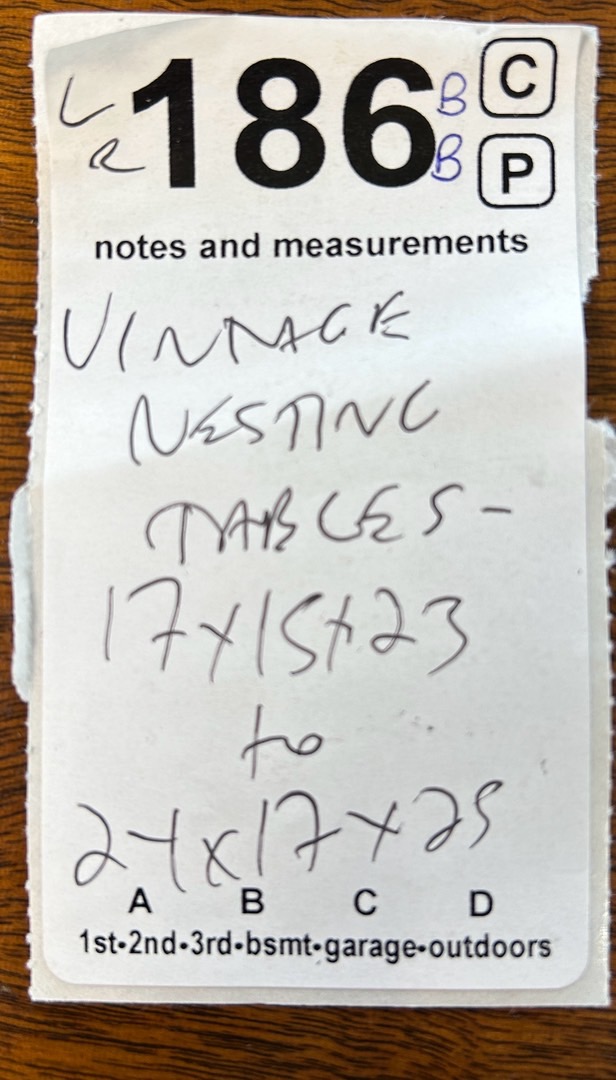 L 186 B C
R B P
notes and measurements
VINTAGE
NESTING
TABLES-
17x15x23
to
24x17x25
A B C D
1st•2nd•3rd•bsmt•garage•outdoors